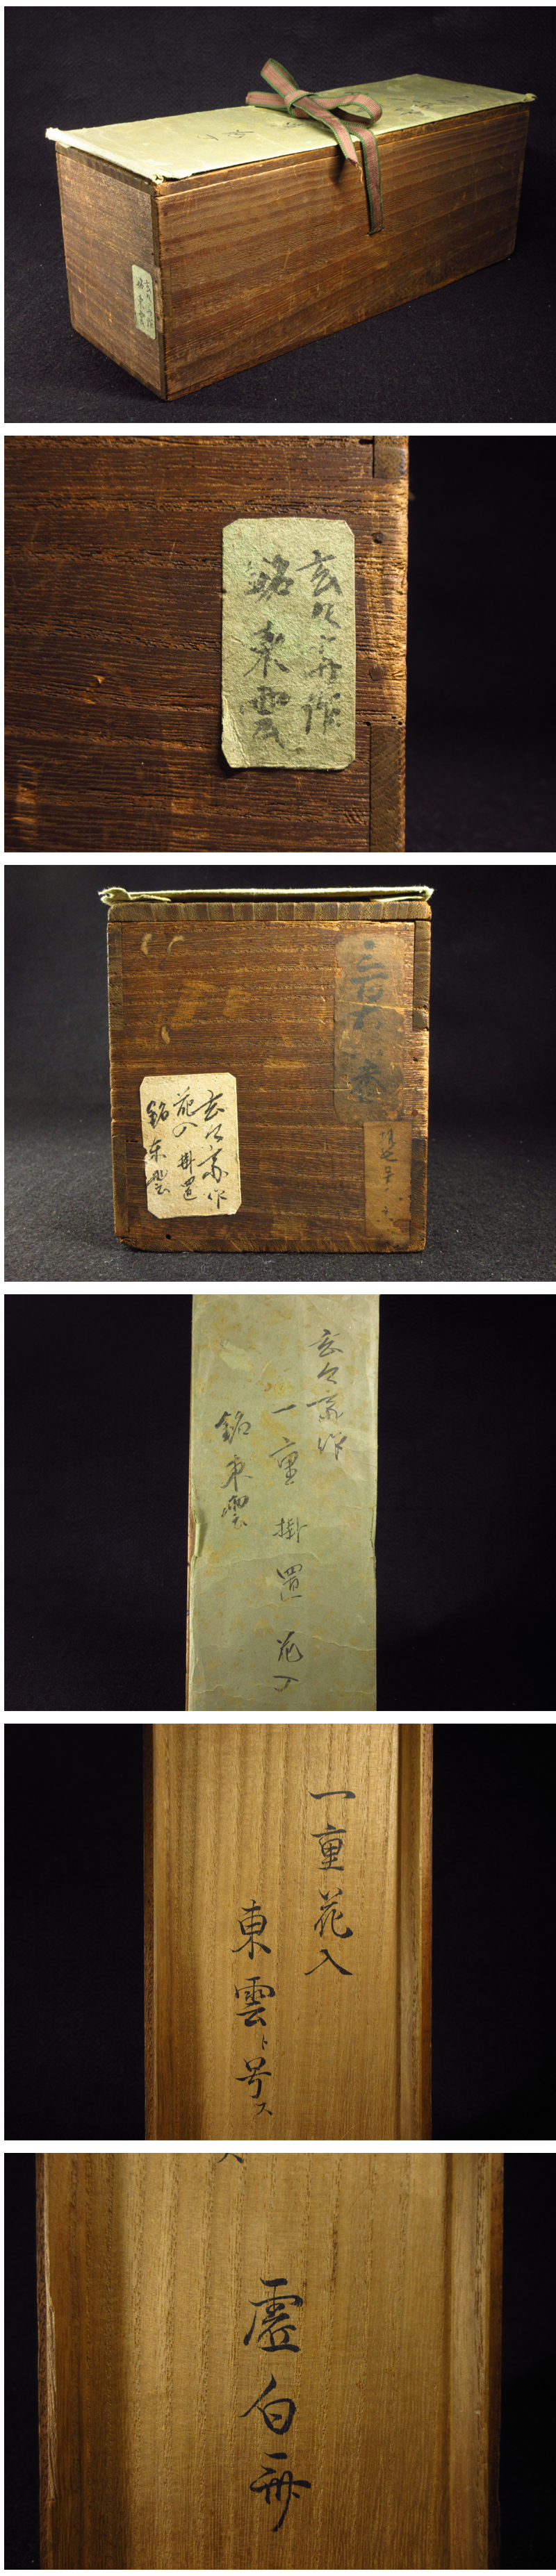 玄々斎作
銘 東雲
玄々斎作
花入 掛置
銘 東雲
玄々斎作
一重 掛置 花入
銘 東雲
一重花入
東雲ト号ス
虚白斎